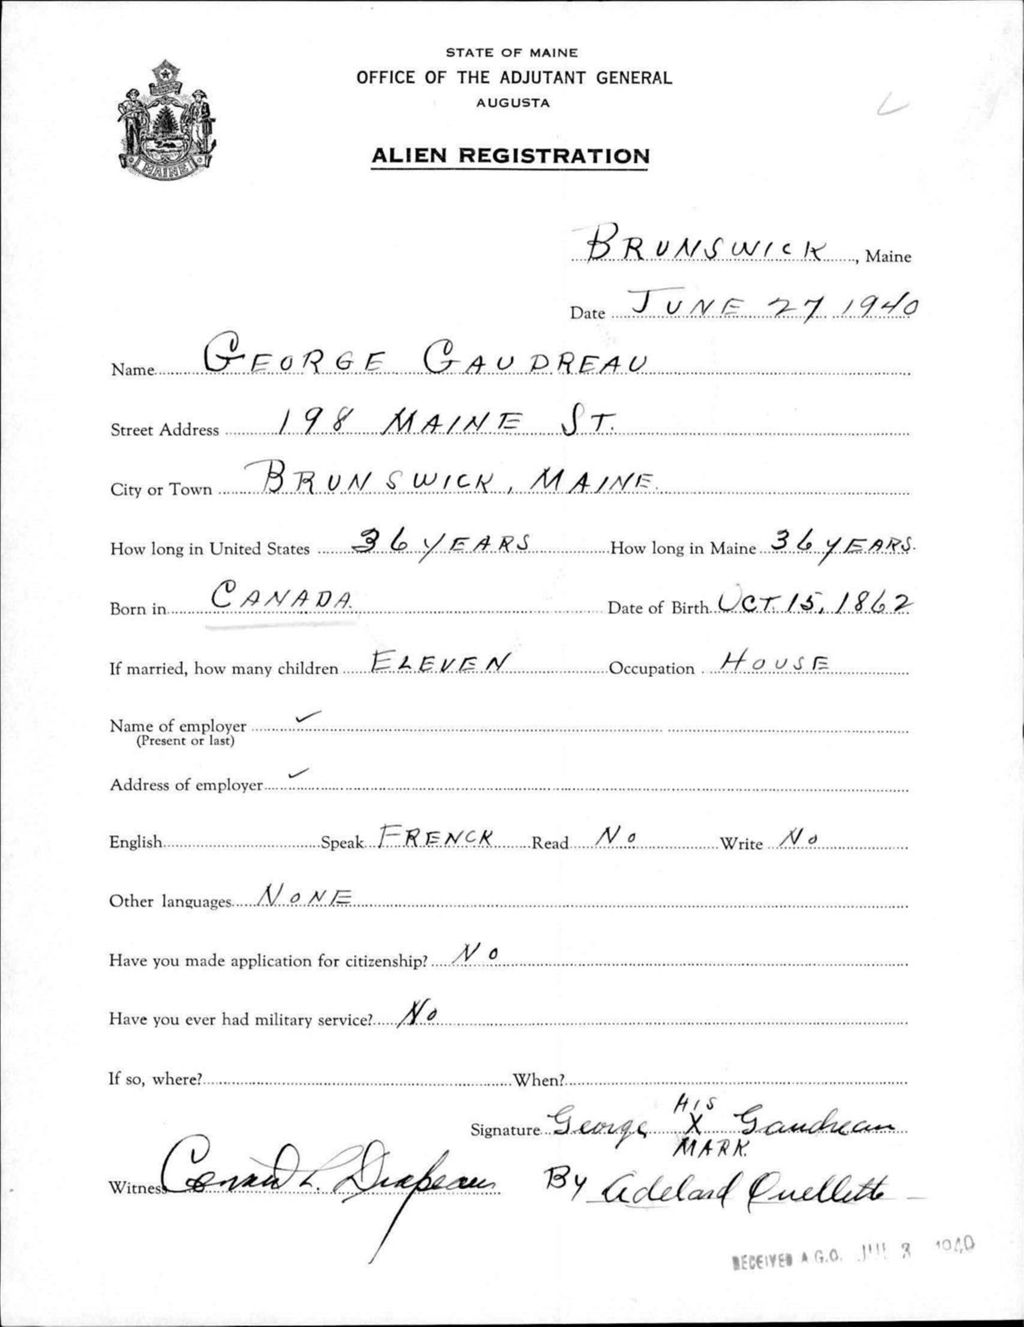 STATE OF MAINE
OFFICE OF THE ADJUTANT GENERAL
AUGUSTA
ALIEN REGISTRATION
MAINE
BRUNSWICK, Maine
Date JUNE 27 1940
Name GEORGE GAUDREAU
Street Address 198 MAINE ST.
City or Town BRUNSWICK, MAINE.
How long in United States 36 YEARS How long in Maine 36 YEARS.
Born in CANADA. Date of Birth OCT. 15, 1862
If married, how many children ELEVEN Occupation HOUSE
Name of employer ✓
(Present or last)
Address of employer ✓
English Speak FRENCK Read No Write No
Other languages NONE
Have you made application for citizenship? No
Have you ever had military service? No
If so, where? When?
Signature George HIS X MARK Gaudreau
Witness Conrad L. Drapeau By Adelard Ouellette
RECEIVED A.G.O. JUL 3 1940